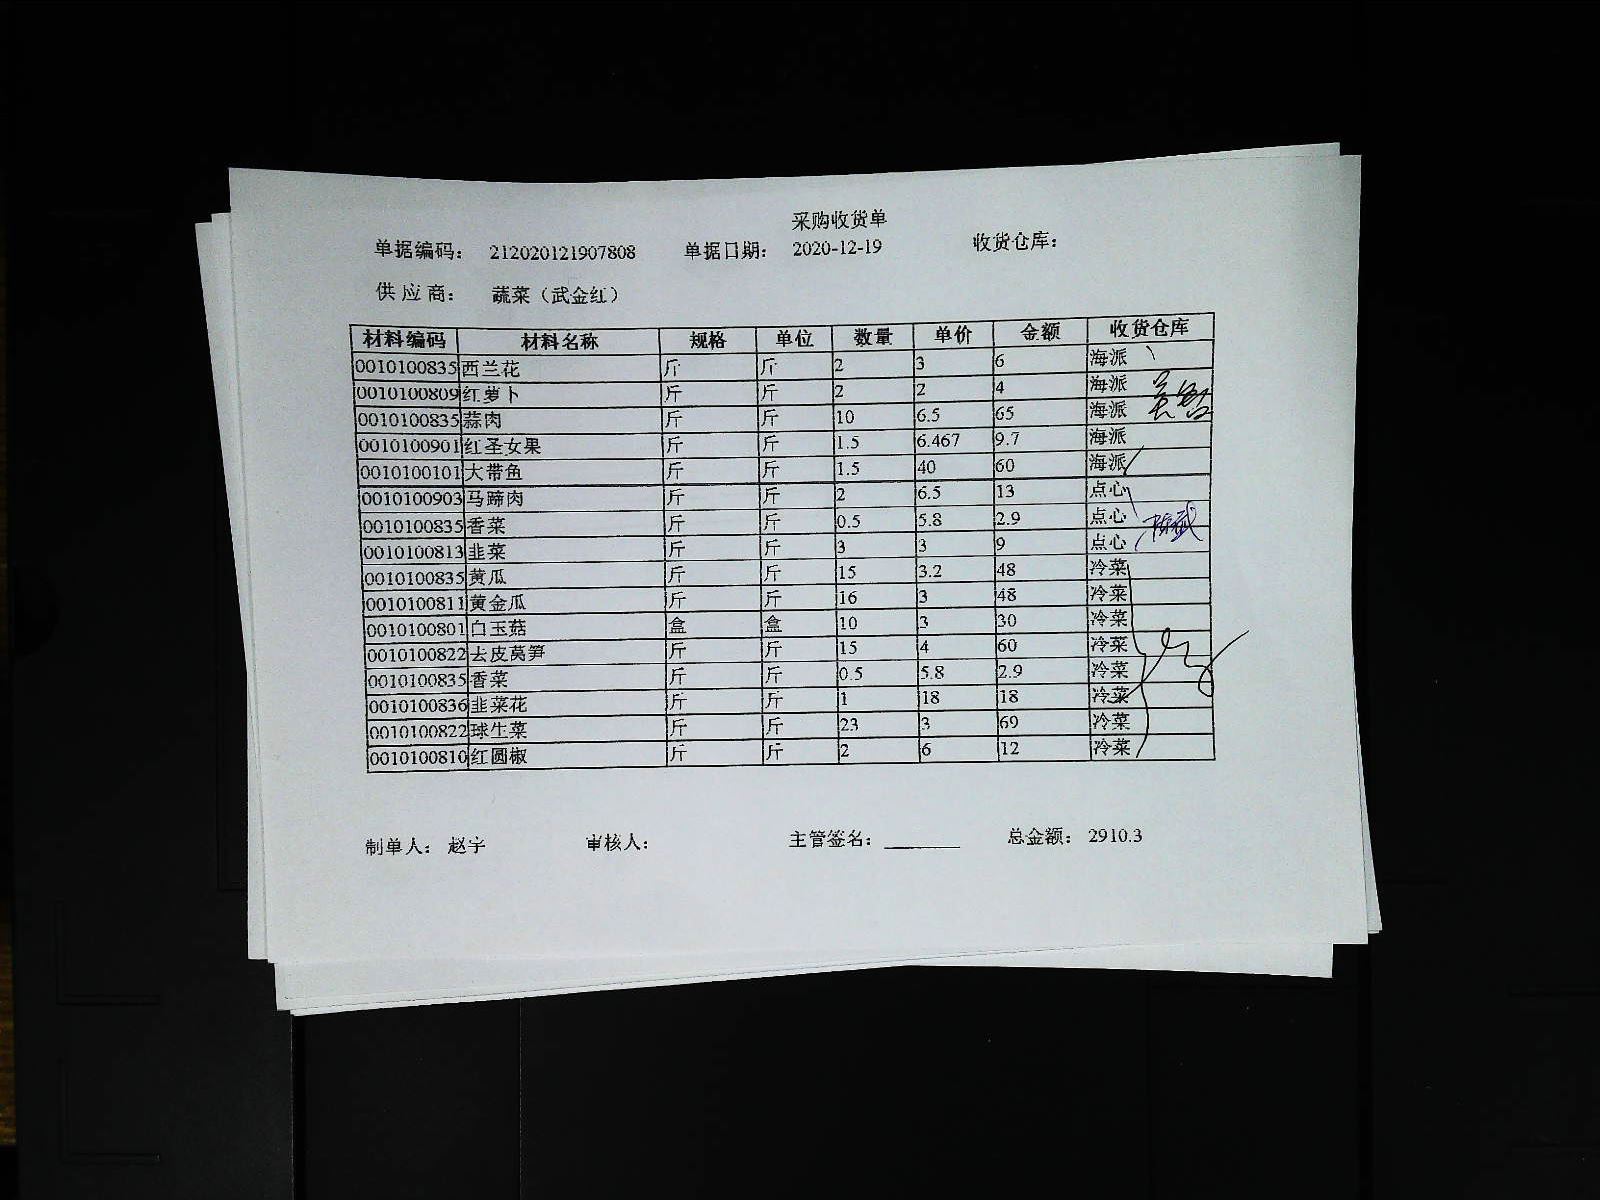 采购收货单
单据编码： 212020121907808 单据日期： 2020-12-19 收货仓库：
供应商： 蔬菜（武金红）
材料编码 材料名称 规格 单位 数量 单价 金额 收货仓库
0010100835 西兰花 斤 斤 2 3 6 海派
0010100809 红萝卜 斤 斤 2 2 4 海派
0010100835 蒜肉 斤 斤 10 6.5 65 海派
0010100901 红圣女果 斤 斤 1.5 6.467 9.7 海派
0010100101 大带鱼 斤 斤 1.5 40 60 海派
0010100903 马蹄肉 斤 斤 2 6.5 13 点心
0010100835 香菜 斤 斤 0.5 5.8 2.9 点心
0010100813 韭菜 斤 斤 3 3 9 点心
0010100835 黄瓜 斤 斤 15 3.2 48 冷菜
0010100811 黄金瓜 斤 斤 16 3 48 冷菜
0010100801 白玉菇 盒 盒 10 3 30 冷菜
0010100822 去皮莴笋 斤 斤 15 4 60 冷菜
0010100835 香菜 斤 斤 0.5 5.8 2.9 冷菜
0010100836 韭菜花 斤 斤 1 18 18 冷菜
0010100822 球生菜 斤 斤 23 3 69 冷菜
0010100810 红圆椒 斤 斤 2 6 12 冷菜
制单人： 赵宇 审核人： 主管签名： 总金额： 2910.3